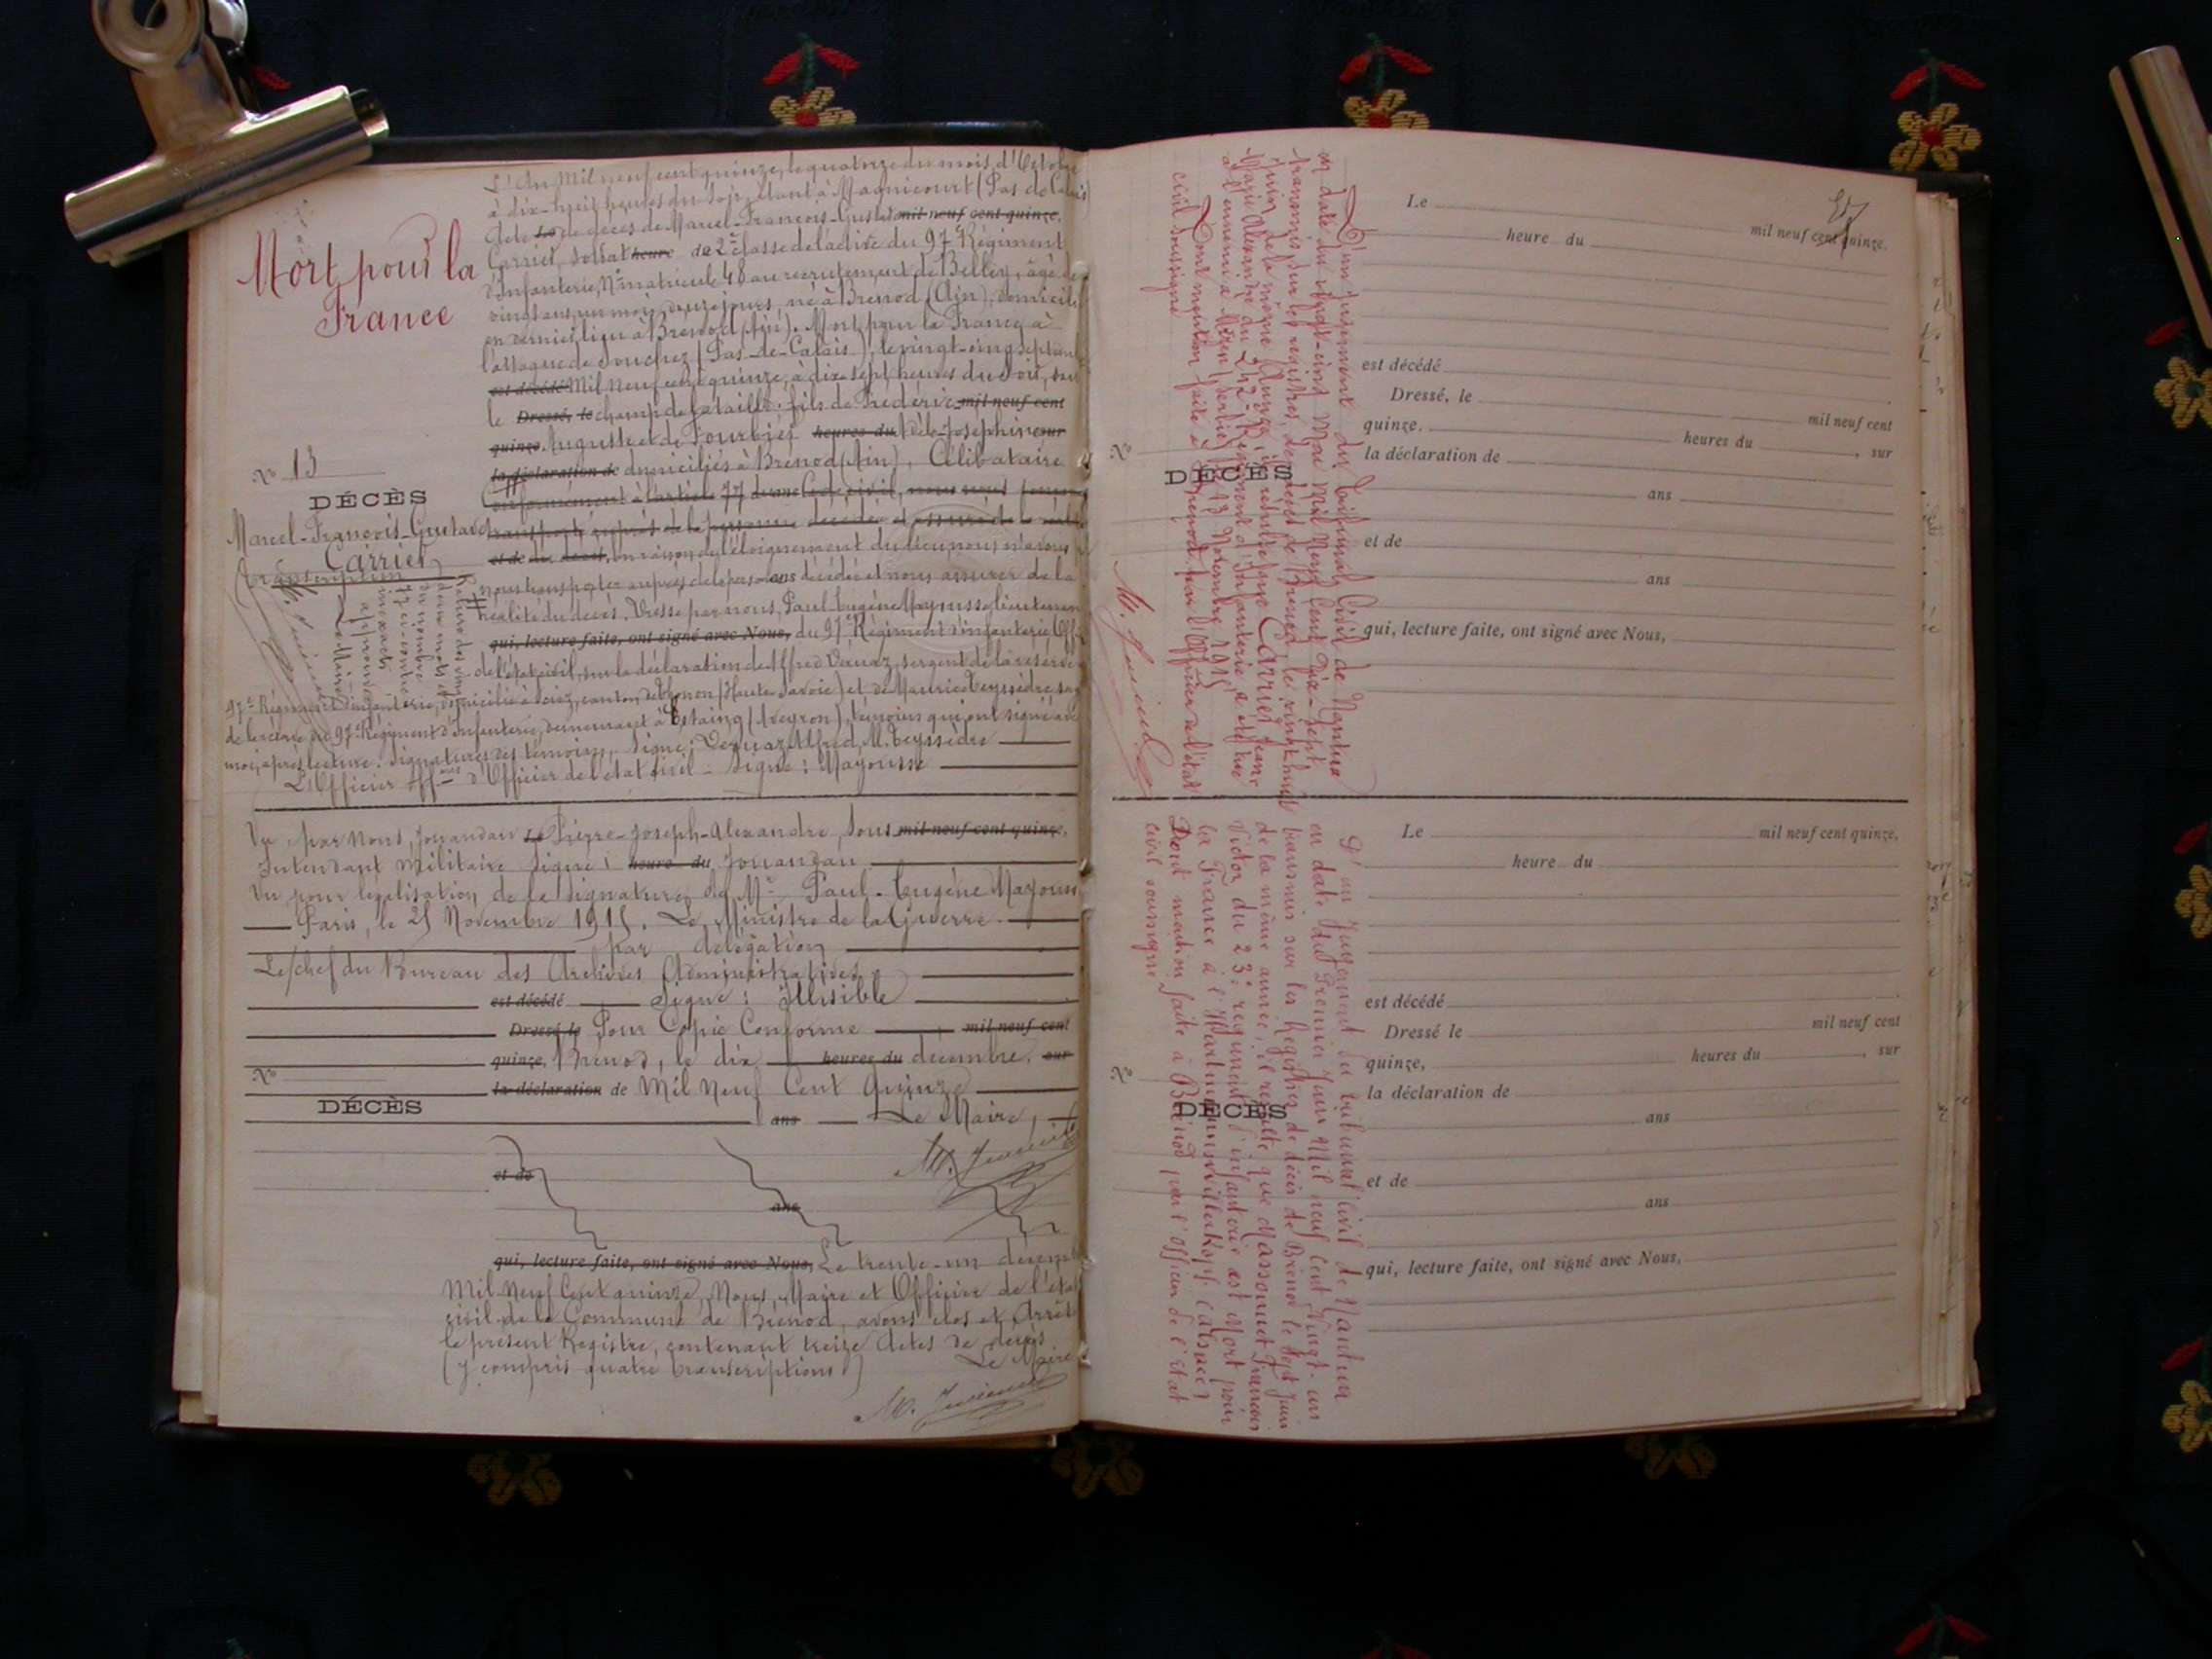 Mort pour la
France
N° 13
DÉCÈS
Marcel-François-Gustave
Carrier
transcription
L'An Mil neuf cent quinze, le quatorze du mois d'Octobre
à dix-huit heures du soir, étant à Magnicourt (Pas de Calais)
Acte Le de décès de Marcel-François-Gustave mil neuf cent quinze,
Carrier, soldat heure de 2e classe de l'active du 97e Régiment
d'Infanterie, N° matricule 48 au recrutement de Belley, âgé de
vingt ans, un mois, douze jours, né à Brénod (Ain), domicilié
en dernier lieu à Brénod (Ain). Mort pour la France à
l'attaque de Souchez (Pas-de-Calais), le vingt-cinq septembre
est décédé Mil neuf cent quinze, à dix-sept heures du soir, sur
le Dressé, le champ de bataille: fils de Frédéric mil neuf cent
quinze. Auguste et de Tourbier heures du Adèle-Josephine sur
la déclaration de domiciliés à Brénod (Ain), Célibataire
Conformément à l'article 77 du Code civil, nous nous
transporté auprès de la personne décédée et
et de du décès, en raison de l'éloignement du lieu nous n'avons
nous transporter auprès de la personne ans décédée et nous assurer de la
réalité du décès. Dressé par nous, Paul-Eugène Mayousse, lieutenant
qui, lecture faite, ont signé avec Nous, du 97e Régiment d'infanterie, Off
de l'état civil, sur la déclaration de Alfred Vernaz, sergent de la réserve
97e Régiment d'infanterie, domicilié à Sciez, canton de Thonon (Haute Savoie) et de Maurice Teyssèdre,
de réserve au 97e Régiment d'Infanterie, demeurant à Estaing (Aveyron), témoins qui ont signé avec
moi, après lecture. Signatures des témoins, Signé: Vernaz Alfred, M. Teyssèdre
L'Officier d'Officier de l'état civil - Signé: Mayousse
Vu par nous, Jouandau Le Pierre-Joseph-Alexandre, Sous mil neuf cent quinze,
Intendant Militaire Signé: heure du Jouandau
Vu pour légalisation de la signature de Mr Paul-Eugène Mayousse
Paris, le 25 Novembre 1915. Le Ministre de la Guerre.
par délégation
Le chef du Bureau des Archives Administratives
est décédé Signé: Illisible
Dressé le Pour Copie Conforme mil neuf cent
quinze, Brénod, le dix heures du décembre. sur
N°
la déclaration de Mil Neuf Cent Quinze
DÉCÈS
ans Le Maire,
et de
ans
qui, lecture faite, ont signé avec Nous, Le trente-un décembre
Mil Neuf Cent quinze, Nous, Maire et Officier de l'état
civil de la Commune de Brénod, avons clos et Arrêté
le présent Registre, contenant treize Actes de décès
(y compris quatre transcriptions)
Le Maire
D'un jugement du tribunal Civil de Nantua
en date du vingt-cinq Mai Mil Neuf Cent Dix-Sept
transmis sur les registres de décès de Brénod, le vingt huit
Juin de la même Année, il résulte que Carrier Jean
Marie Alexandre du 242e Régiment d'Infanterie a été tué
à l'ennemi à Mesen (Serbie) le 13 Novembre 1915
Dont mention faite à Brénod par l'Officier de l'état
civil soussigné
Le
heure du mil neuf cent quinze.
est décédé
Dressé, le
mil neuf cent
quinze. heures du , sur
N°
la déclaration de
DÉCÈS
ans
et de
ans
qui, lecture faite, ont signé avec Nous,
D'un Jugement du tribunal civil de Nantua
en date du Premier Juin Mil neuf Cent Vingt-un
transmis sur les Registres de décès de Brénod le Sept Juin
de la même année, il résulte que Massonnet François
Victor du 23e régiment d'infanterie est Mort pour
la France à l'Hartmannswillerkopf (Alsace)
Dont mention faite à Brénod par l'officier de l'Etat
civil soussigné
Le mil neuf cent quinze.
heure du
est décédé
Dressé le mil neuf cent
quinze, heures du , sur
N°
la déclaration de
DÉCÈS
ans
et de
ans
qui, lecture faite, ont signé avec Nous,